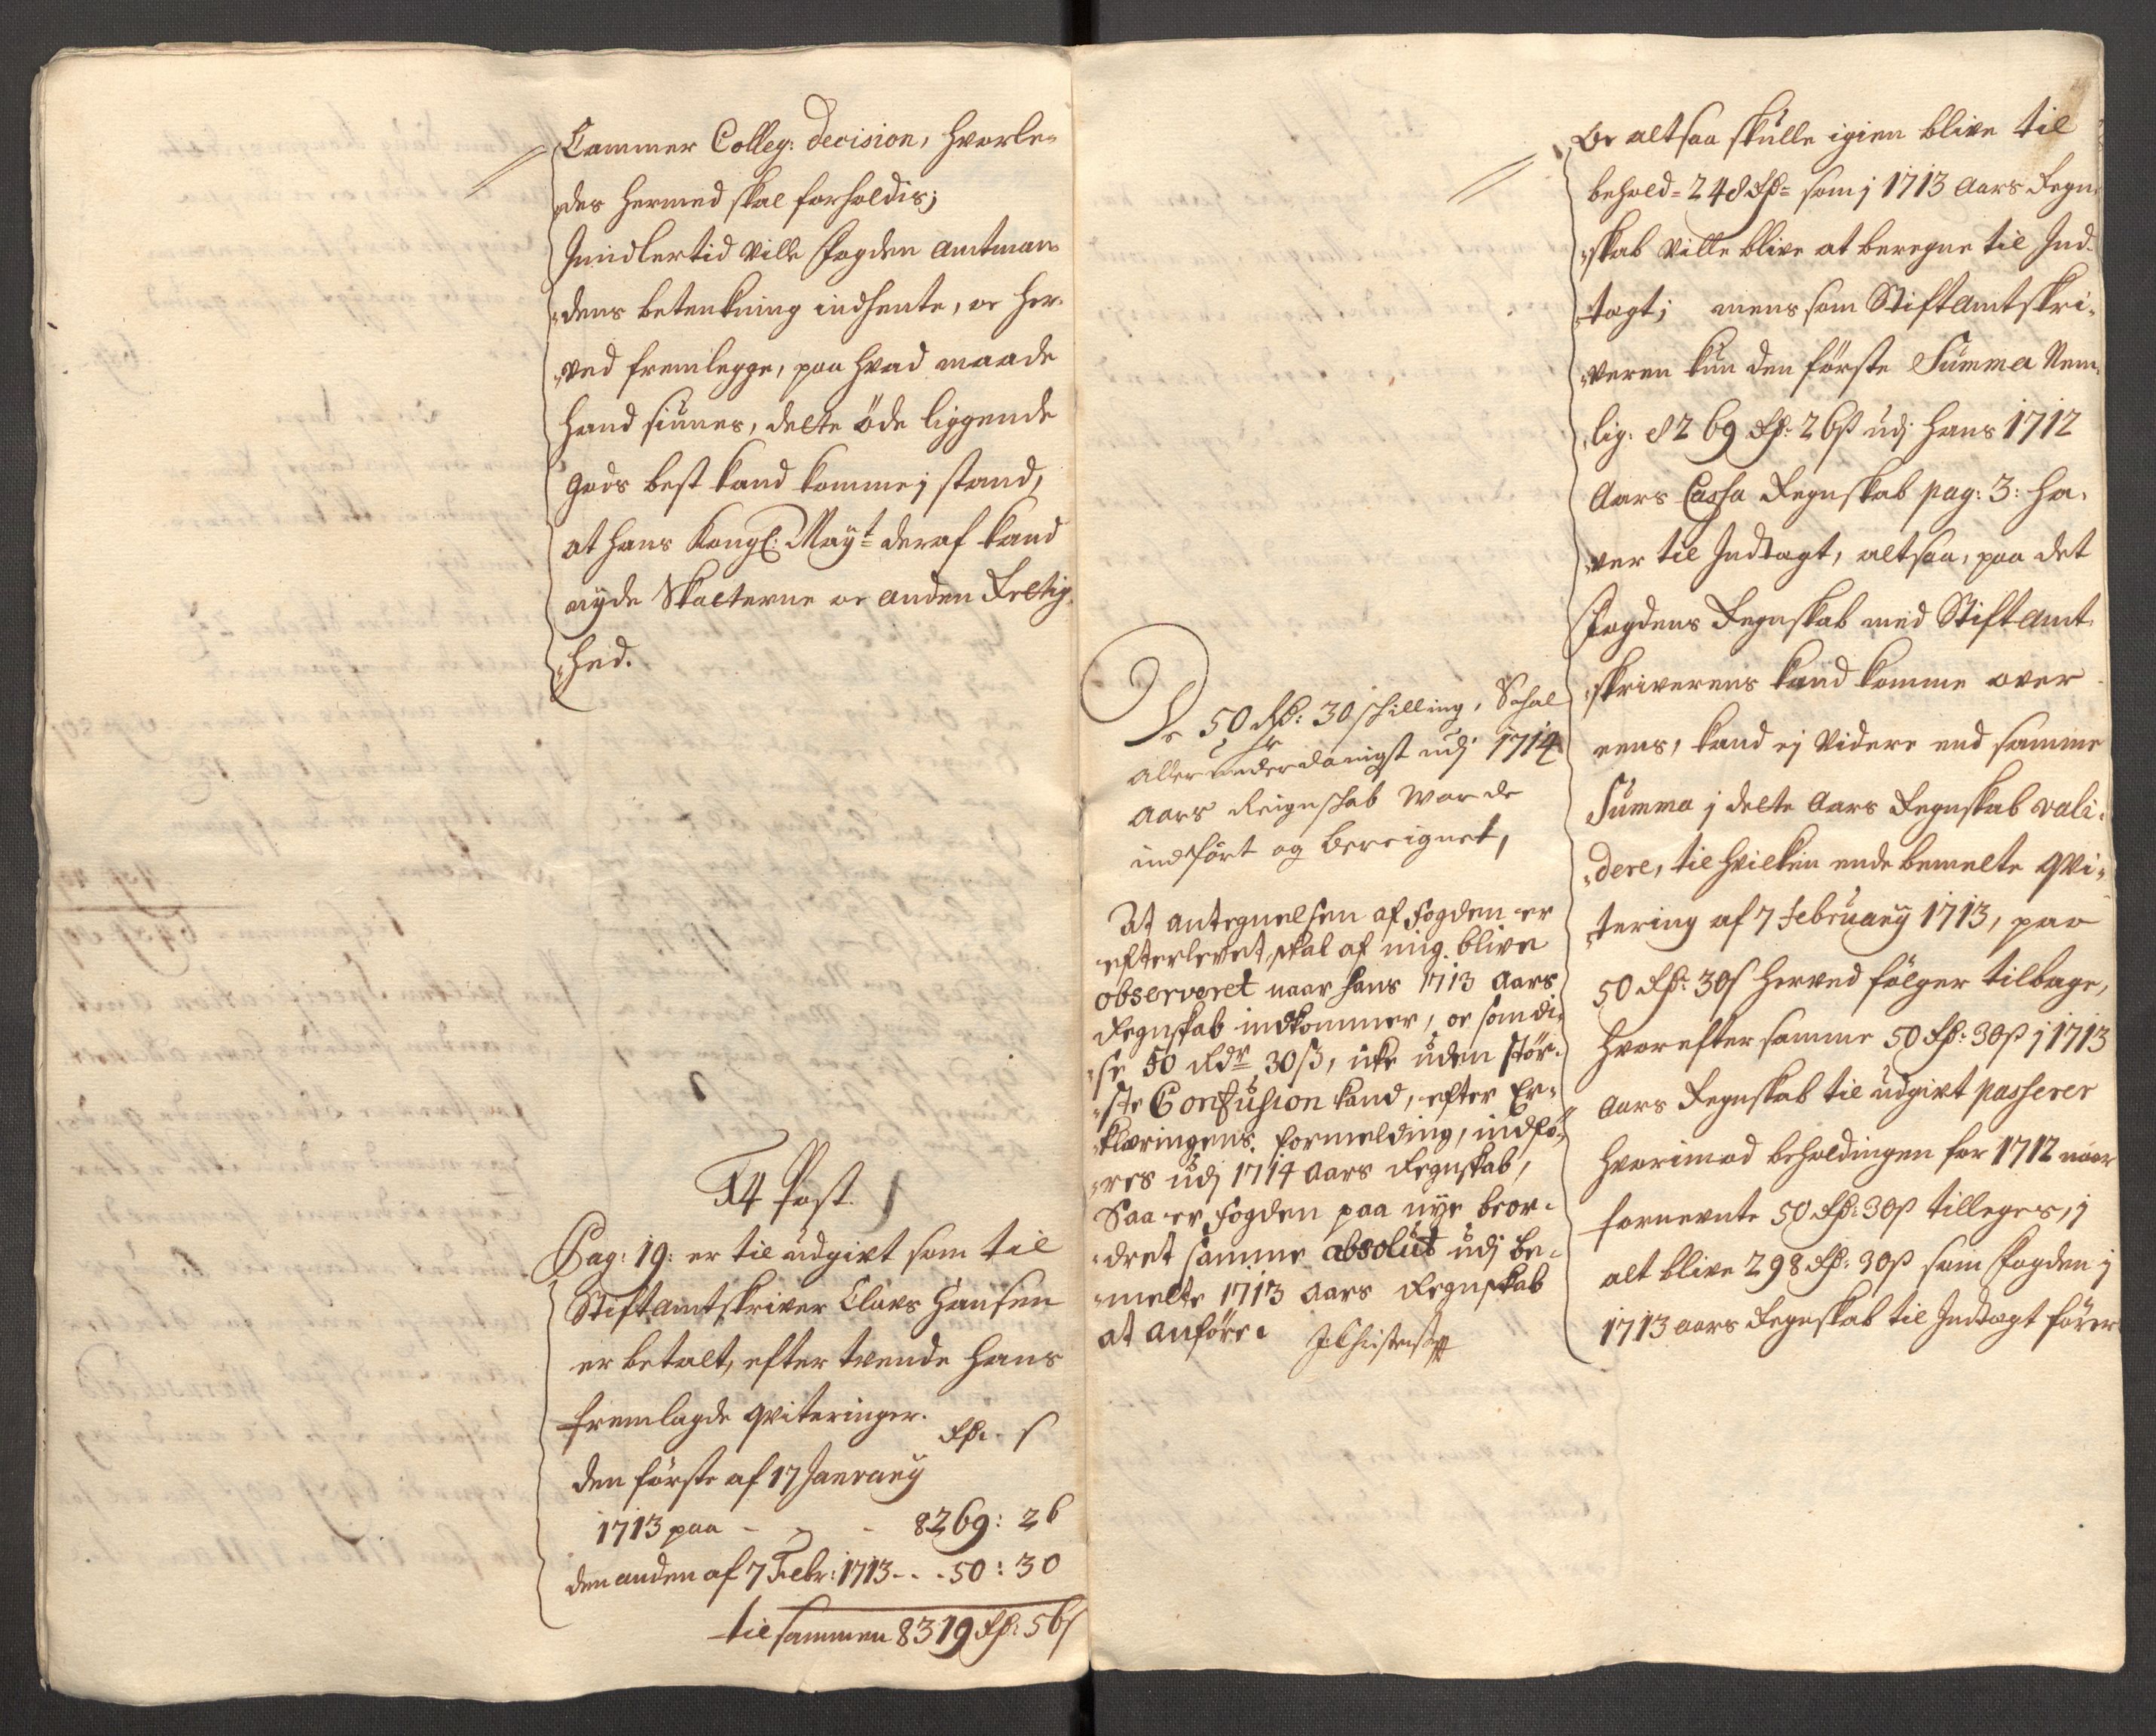 Cammer Colleg: decision, hvorle-
des hermed skal forholdis;
Immidlertid ville Fogden amtman-
dens betenkning indhente, oc her-
ved fremlegge, paa hvad maade
hand siunes, dette öde liggende
gods best kand komme j stand,
at hans Kongl: Mayt deraf kand
nyde Skatterne oc anden Rettig-
hed.
14 Post.
Pag: 19: er til udgivt som til
Stiftamtskriver Claus Hansen
er betalt, efter tvende hans
fremlagde qviteringer.
Rd. s
den förste af 17 January
1713 paa - - - 8269: 26
den anden af 7 Febr: 1713 - - - 50: 30
tilsammen 8319 Rd: 56 s
De 50 Rd: 30 schilling, Schal
allerunderdanigst udj 1714
aars Reignschab worde
indfört og bereignet,
At antegnelsen af Fogden er
efterlevet, skal af mig blive
observeret naar hans 1713 Aars
Regnskab indkommer, oc som di-
se 50 Rdr 30 ß, icke uden stör-
ste Confusion kand, efter Er-
klæringens formelding, indfö-
res udj 1714 Aars Regnskab,
Saa er Fogden paa nye beor-
dret samme absolut udj be-
melte 1713 Aars Regnskab
at anföre.
Oc altsaa skulle igien blive til
behold = 248 Rd = som j 1713 Aars Regn-
skab ville blive at beregne til Ind-
tægt; mens som Stiftamtskri-
veren kun den förste Summa Nem-
lig: 8269 Rd: 26 ß udj hans 1712
Aars Cassa Regnskab pag: 3: ha-
ver til Indtægt, altsaa, paa det
Fogdens Regnskab med Stiftamt-
skriverens kand komme over-
eens, kand ej videre end samme
Summa j dette Aars Regnskab vali-
dere, til hvilken ende bemelte qvi-
tering af 7 February 1713, paa
50 Rd: 30 s herved fölger tilbage,
hvorefter samme 50 Rd: 30 ß j 1713
Aars Regnskab til udgivt passerer
hvorimod beholdingen for 1712 naar
fornevnte 50 Rd: 30 ß tilleges, j
alt blive 298 Rd: 30 ß som Fogden j
1713 aars Regnskab til Indtægt förer